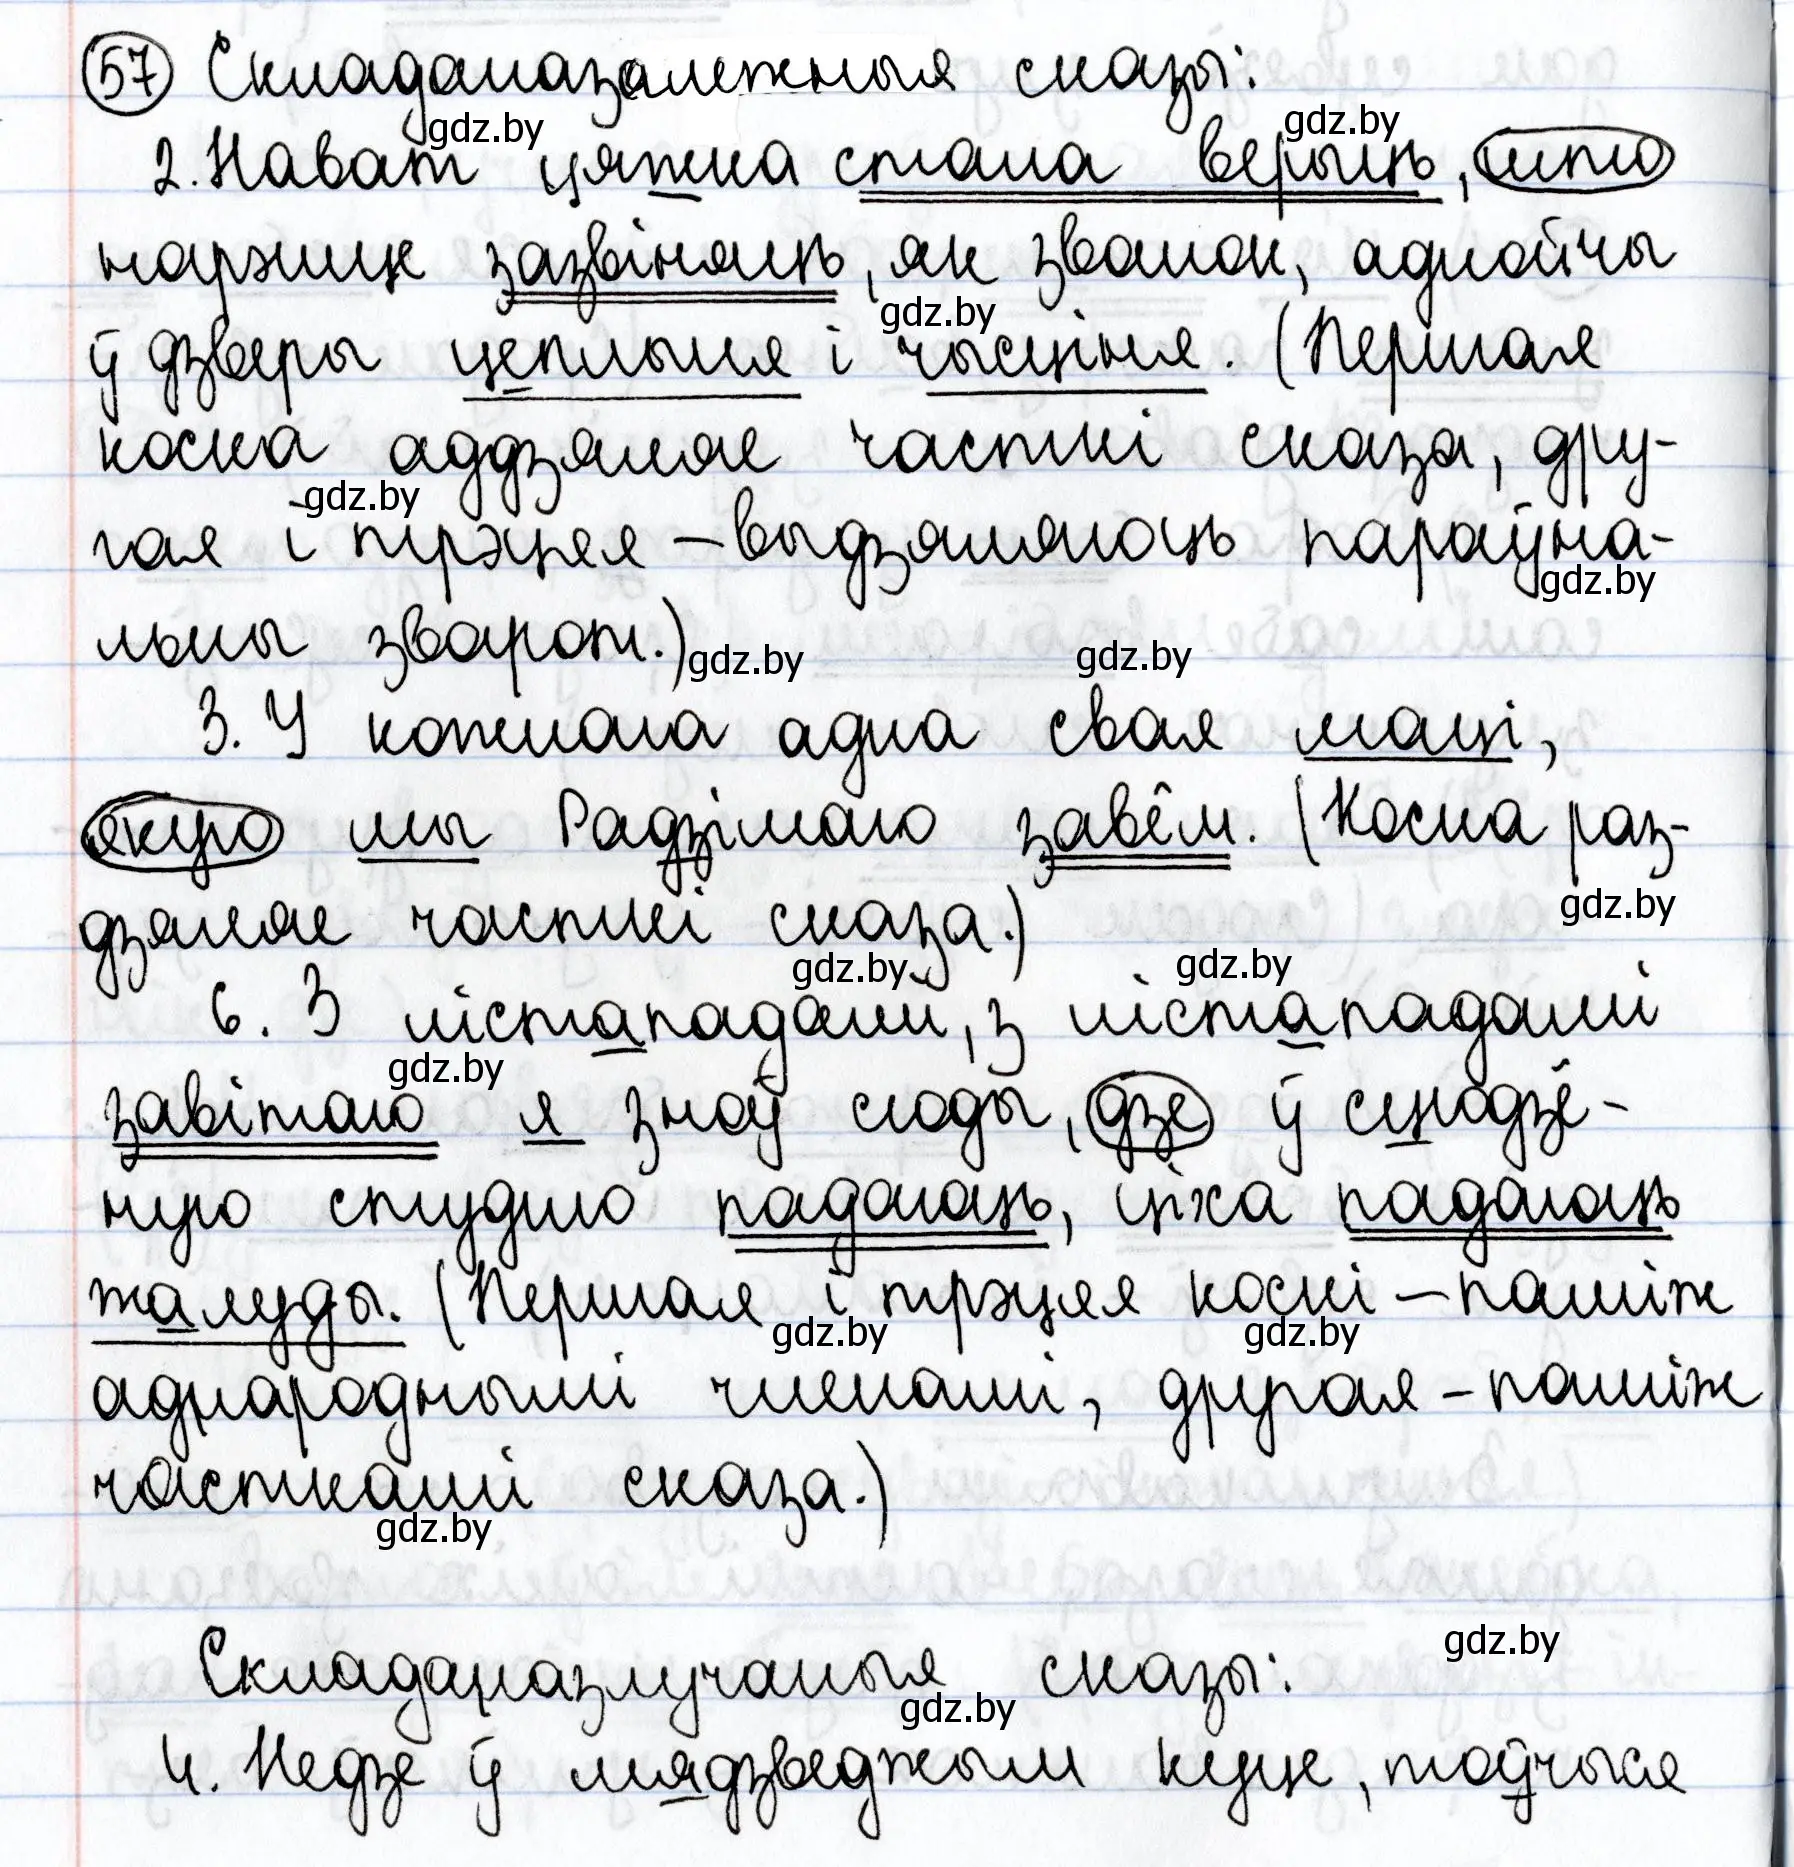 57 Складаназалежныя сказы:
gdz.by gdz.by
2. Нават цяжка стала верыць, што
нарэшце зазвіняць, як званок, аднойчы
gdz.by
ў дзверы цеплыня і чысціня. (Першая
коска аддзяляе часткі сказа, дру-
gdz.by
гая і трэцяя – выдзяляюць параўна-
gdz.by
льны зварот.)
gdz.by gdz.by
3. У кожнага адна свая маці,
якую мы Радзімаю завём. (Коска раз-
gdz.by
дзяляе часткі сказа.)
gdz.by gdz.by
6. З лістападамі, з лістападамі
gdz.by
завітаю я зноў сюды, дзе ў сцюдзё-
ную студню падаюць, ціха падаюць
жалуды. (Першая і трэцяя коскі – паміж
gdz.by gdz.by
аднароднымі членамі, другая – паміж
часткамі сказа.)
gdz.by
gdz.by
Складаназлучаныя сказы:
gdz.by
4. Недзе ў мядзведжым куце, тоўчыся